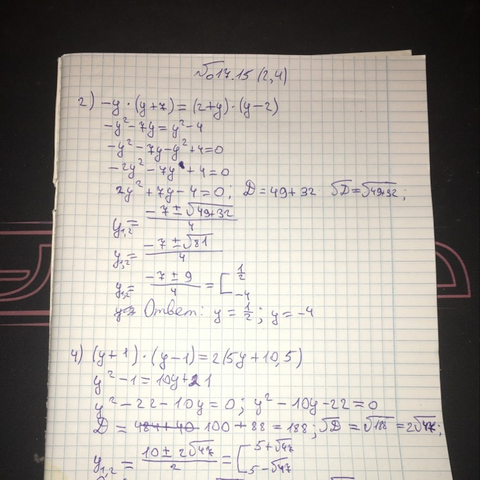 №17.15 (2,4)
2) -y·(y+7)=(2+y)·(y-2)
-y²-7y=y²-4
-y²-7y-y²+4=0
-2y²-7y+4=0
2y²+7y-4=0; D=49+32 √D=√49+32;
y₁,₂= (-7±√49+32)/4
y₁,₂= (-7±√81)/4
y₁,₂= (-7±9)/4 = [ 1/2 -4
Ответ: y=1/2; y=-4
4) (y+1)·(y-1)=2(5y+10,5)
y²-1=10y+21
y²-22-10y=0; y²-10y-22=0
D = 100+88=188; √D=√188=2√47;
y₁,₂= (10±2√47)/2 = [ 5+√47 5-√47